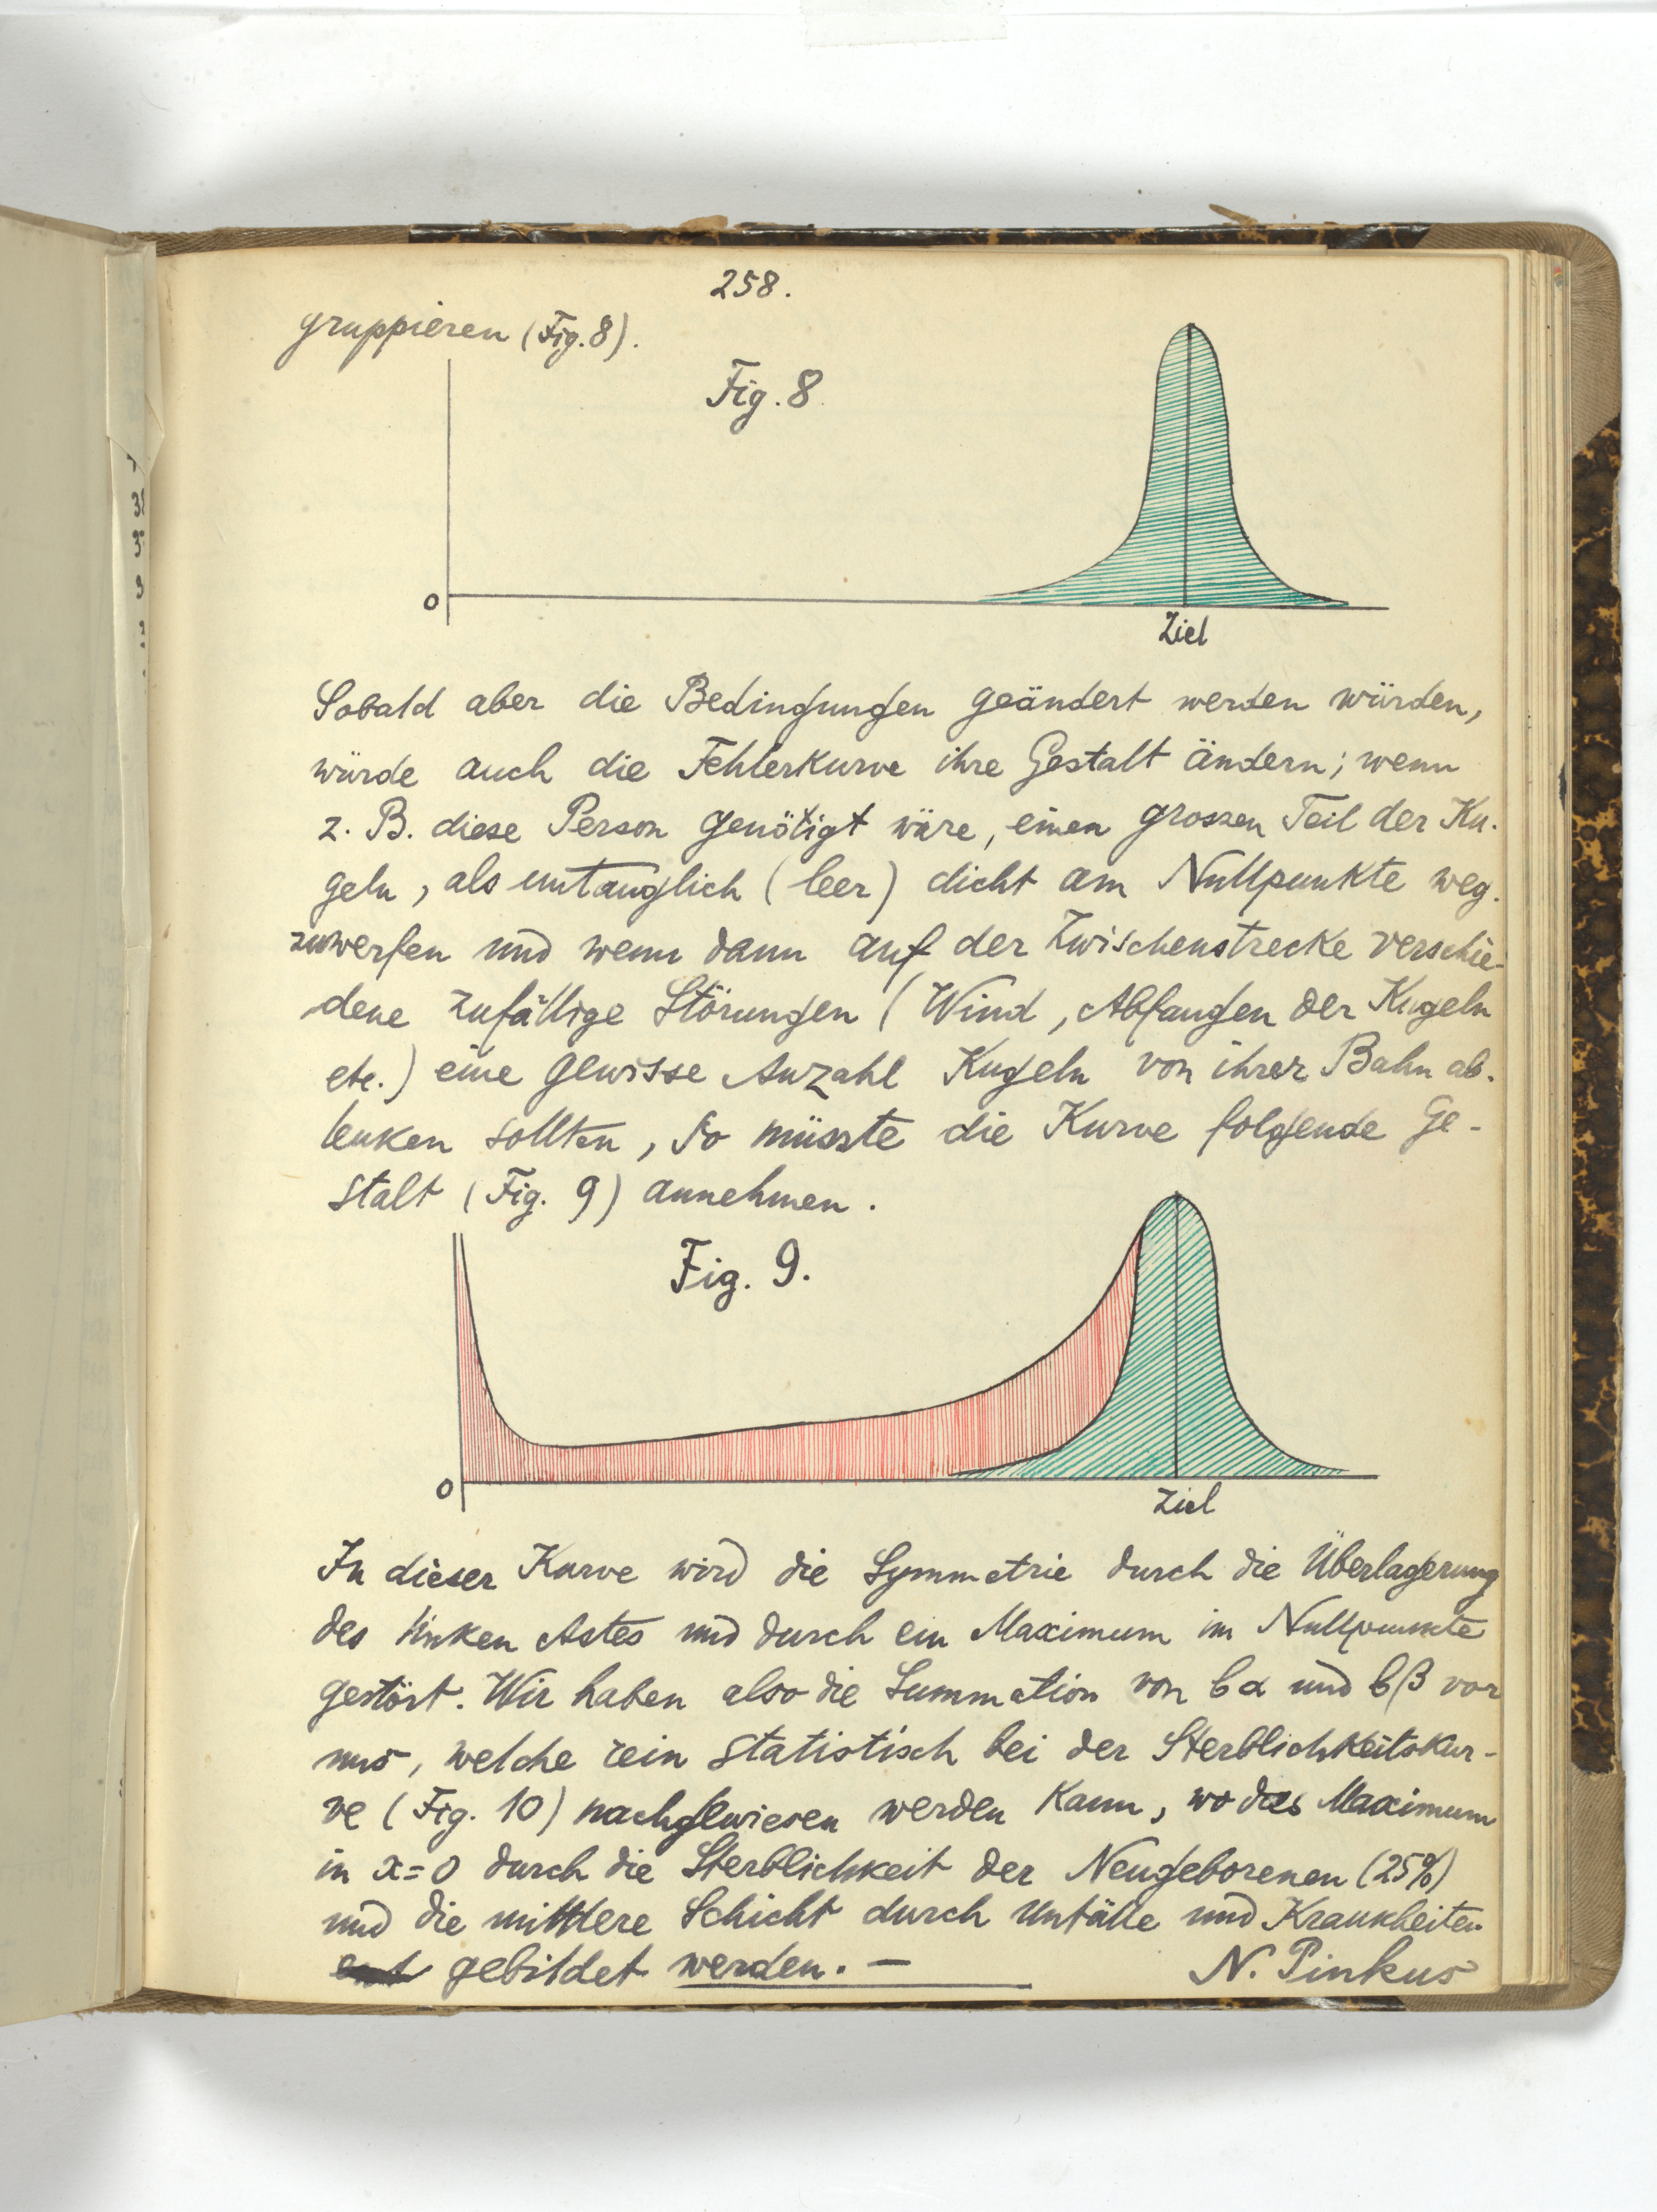 258.
gruppieren (Fig. 8).
Fig. 8
0
Ziel
Sobald aber die Bedingungen geändert werden würden,
würde auch die Fehlerkurve ihre Gestalt ändern; wenn
z. B. diese Person genötigt wäre, einen grossen Teil der Ku-
geln, als untauglich (leer) dicht am Nullpunkte weg-
zuwerfen und wenn dann auf der Zwischenstrecke verschie-
dene zufällige Störungen (Wind, Abfangen der Kugeln
etc.) eine gewisse Anzahl Kugeln von ihrer Bahn ab-
lenken sollten, so müsste die Kurve folgende Ge-
stalt (Fig. 9) annehmen.
Fig. 9.
0
Ziel
In dieser Kurve wird die Symmetrie durch die Überlagerung
des linken Astes und durch ein Maximum im Nullpunkte
gestört. Wir haben also die Summation von bα und bβ vor
uns, welche rein statistisch bei der Sterblichkeitskur-
ve (Fig. 10) nachgewiesen werden kann, wo das Maximum
in x=0 durch die Sterblichkeit der Neugeborenen (25%)
und die mittlere Schicht durch Unfälle und Krankheiten
gebildet werden. —
N. Pinkus